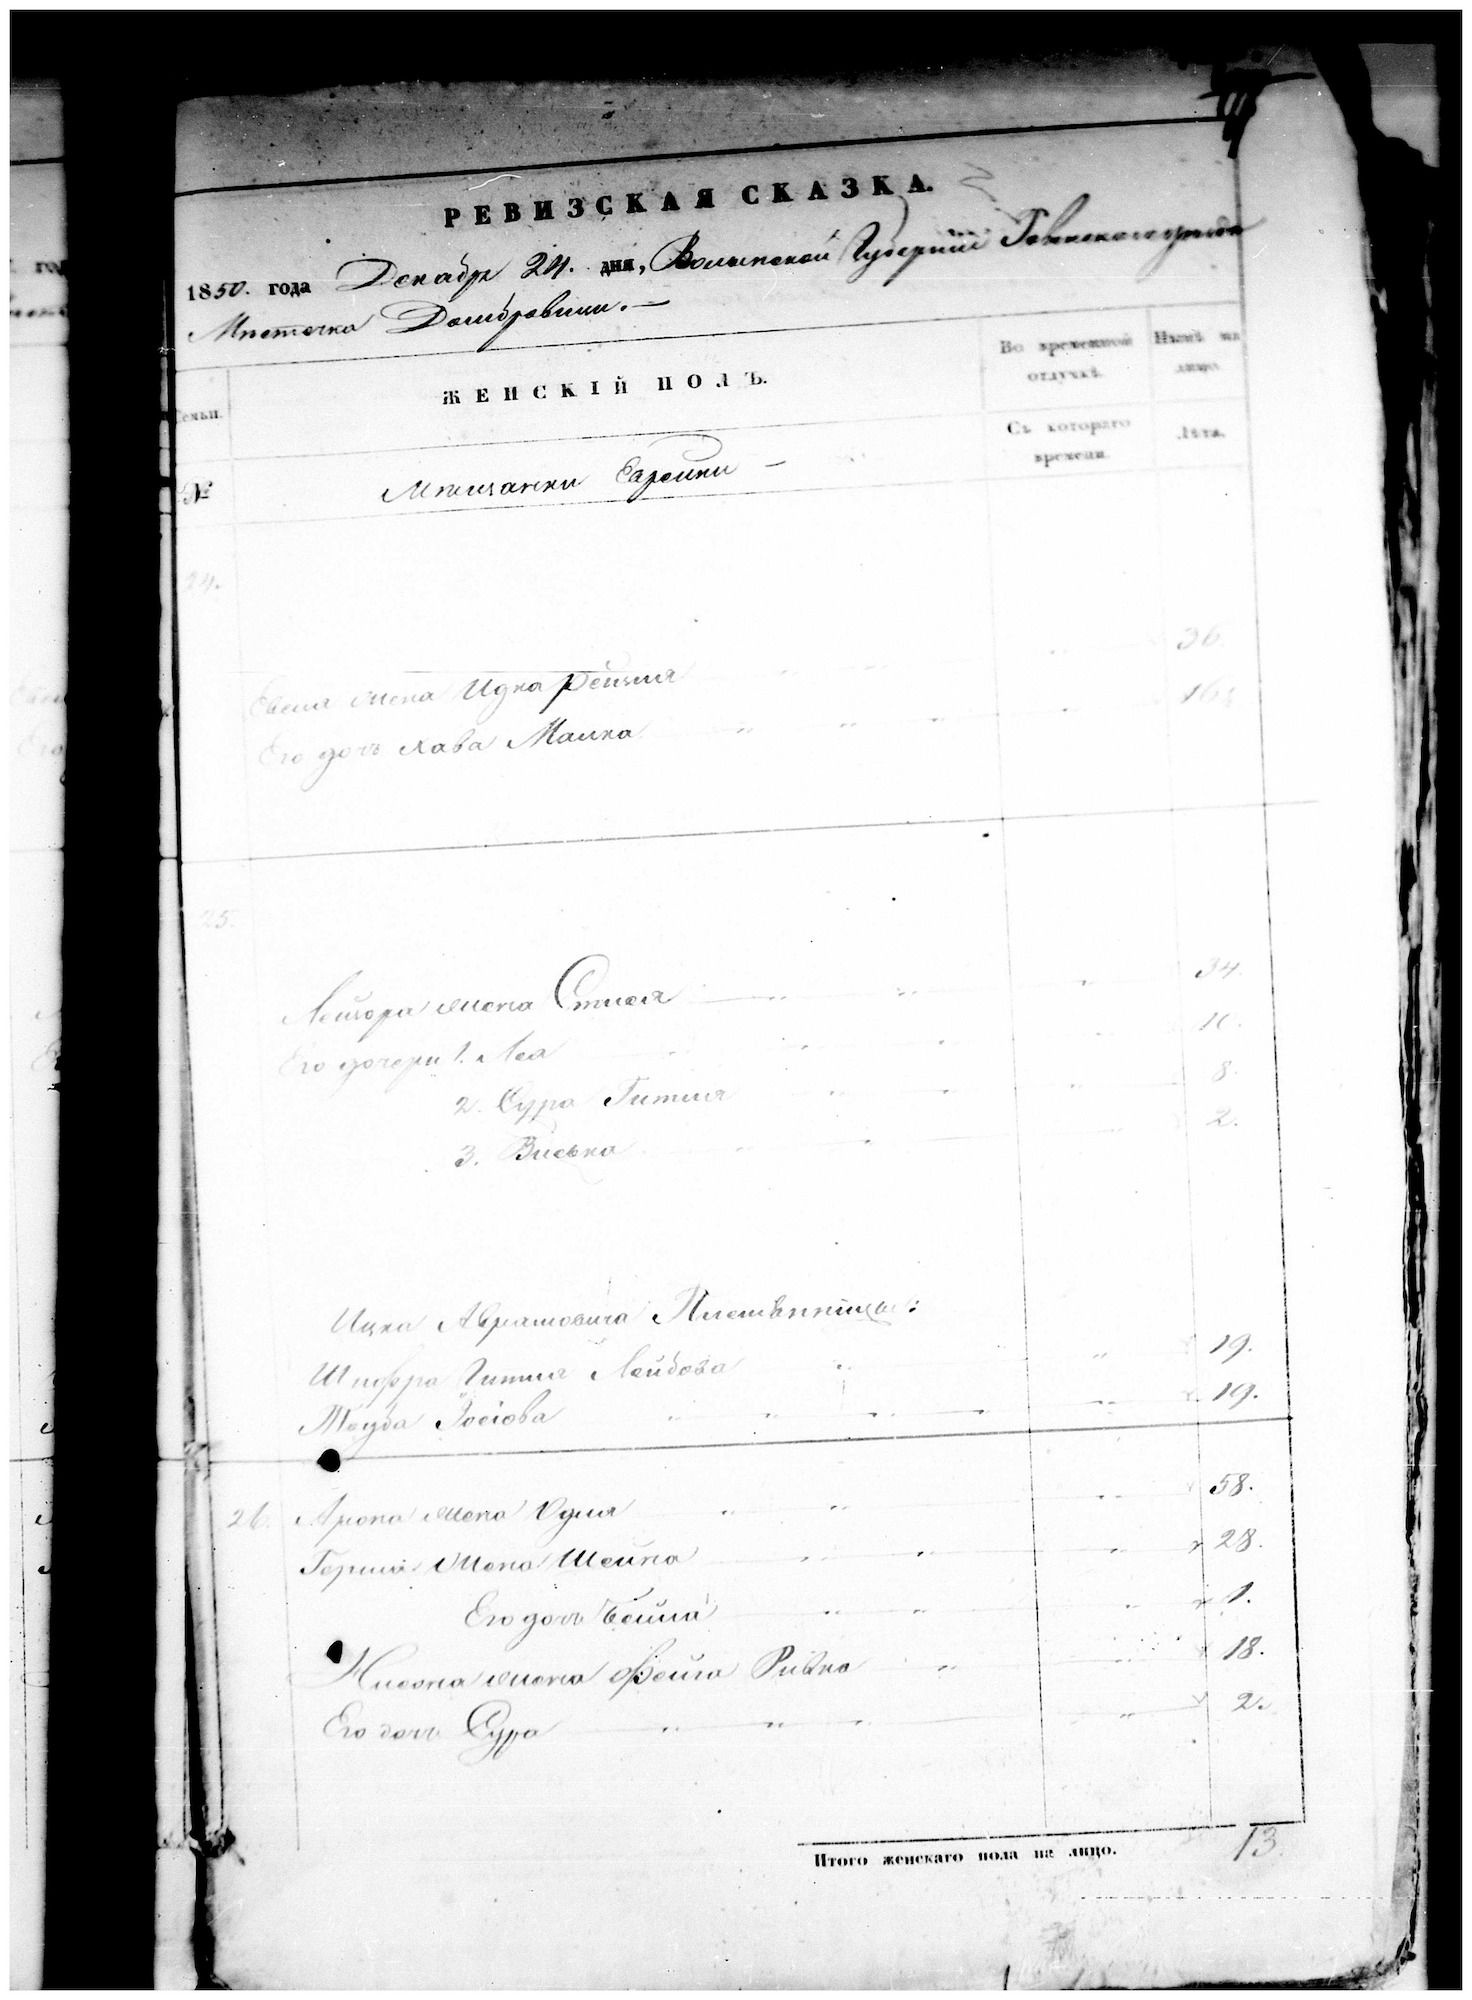 РЕВИЗСКАЯ СКАЗКА.
1850. года Декабря 24. дня, Волынской Губернии Ровенского уезда
Местечка Домбровици. —
Семьи.
ЖЕНСКІЙ ПОЛЪ.
Во временной отлучкѣ.
Нынѣ на лицо.
№
Мещанки Еврейки —
Съ котораго времени.
Лѣта.
24.
жена Идка Рейзля 36.
Его дочь Хава Малка 16
25.
Лейзора жена Стися 34.
Его дочери 1. Леа 10.
2. Сура Гитля 8.
3. Виська 2.
Ицка Абрамовича Племянницы:
Шифра Гитля Лейбова 19.
Іосіова 19.
26. Арона жена Одля 58.
Герша жена Шейна 28.
Его дочь Бейла 1.
Нисона жена Фейга Ривка 18.
Его дочь Сура 2.
Итого женскаго пола на лицо. 13